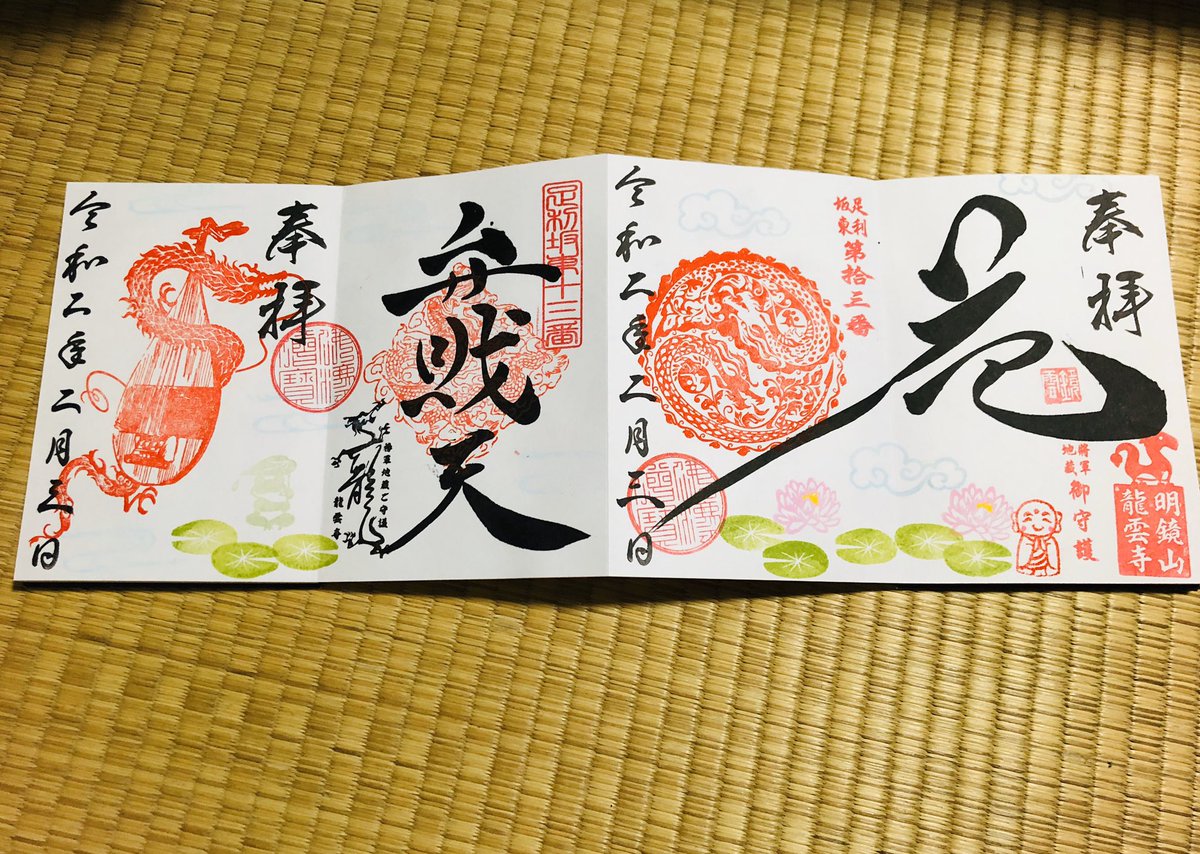 奉拝
花
足利
坂東
第拾三番
将軍
地蔵
御守護
明鏡山
龍雲寺
令和二年二月三日
足利坂東十三番
弁財天
奉拝
佛法僧寶
将軍地蔵ご守護
龍雲寺
令和二年二月三日